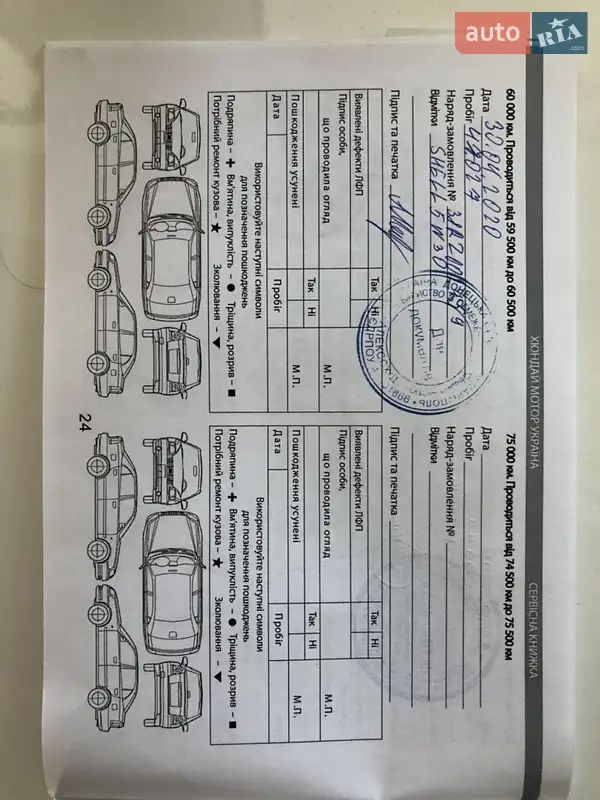 auto RIA .com
ХЮНДАЙ МОТОР УКРАЇНА
СЕРВІСНА КНИЖКА
60 000 км. Проводиться від 59 500 км до 60 500 км
Дата 30.04.2020
Пробіг
Наряд-замовлення №
Відмітки SHELL 5W30
Підпис та печатка
ДОНЕЦЬКА
Для
ДОКУМЕНТІВ
Виявлені дефекти ЛФП Так Ні
Підпис особи,
що проводила огляд М.П.
Пошкодження усунені Так Ні М.П.
Дата Пробіг
Використовуйте наступні символи
для позначення пошкоджень
Подряпина – + Вм'ятина, випуклість – ● Тріщина, розрив – ■
Потрібний ремонт кузова – ★ Зколювання – ▼
75 000 км. Проводиться від 74 500 км до 75 500 км
Дата
Пробіг
Наряд-замовлення №
Відмітки
Підпис та печатка
Виявлені дефекти ЛФП Так Ні
Підпис особи,
що проводила огляд М.П.
Пошкодження усунені Так Ні М.П.
Дата Пробіг
Використовуйте наступні символи
для позначення пошкоджень
Подряпина – + Вм'ятина, випуклість – ● Тріщина, розрив – ■
Потрібний ремонт кузова – ★ Зколювання – ▼
24